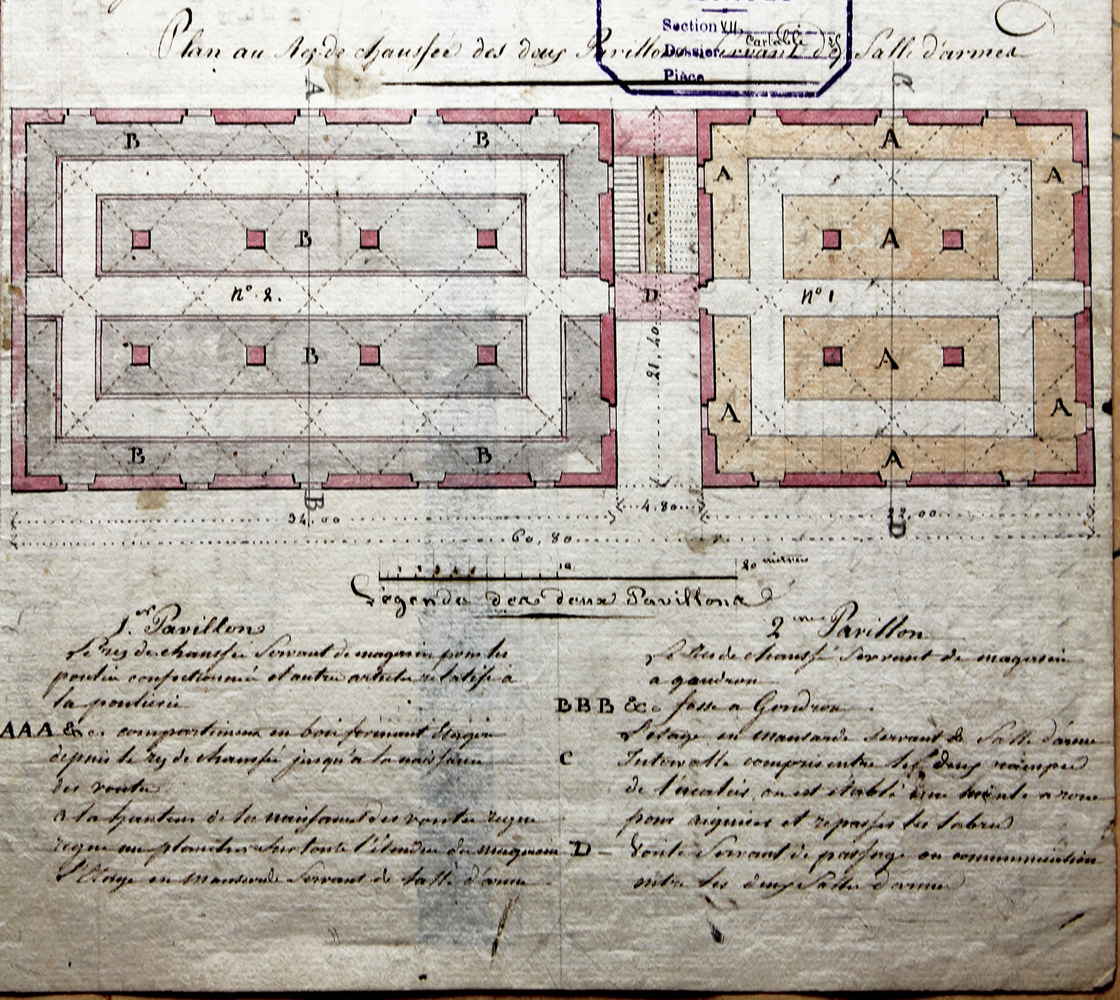 Section VII
Dossier
Pièce
Plan au Rez-de chaussée des deux Pavillons Servant de Salle d'armes
A
B B
A
A A
B
A
C
n° 2.
D
n° 1
B
A
21,40
A A
B B
A
B
D
34,00
4.80
22,00
60,80
10
20 mètres
Légende des deux Pavillons
1.er Pavillon
Le rez de chaussée Servant de magasin pour les
poulies confectionnées et autres articles relatifs à
la poulierie
AAA &c. compartimens en bois formant Etagère
depuis le rez de chaussée jusqu'à la naissance
des voutes
a la hauteur de la naissance des voutes regne
regne un plancher Sur toute l'étendue du magasin
L'Etage en mansarde Servant de Salle d'arme
2.me Pavillon
Le Rez de chaussé Servant de magasin
a goudron
BBB &c. fosse a Goudron
L'etage en mansarde servant de Salle d'arme
C Intervalle compris entre les deux rampes
de l'escalier, ou est établi une meule a roue
pour aiguiser et repasser les sabres
D Voute Servant de passage ou communication
entre les deux Salle d'arme